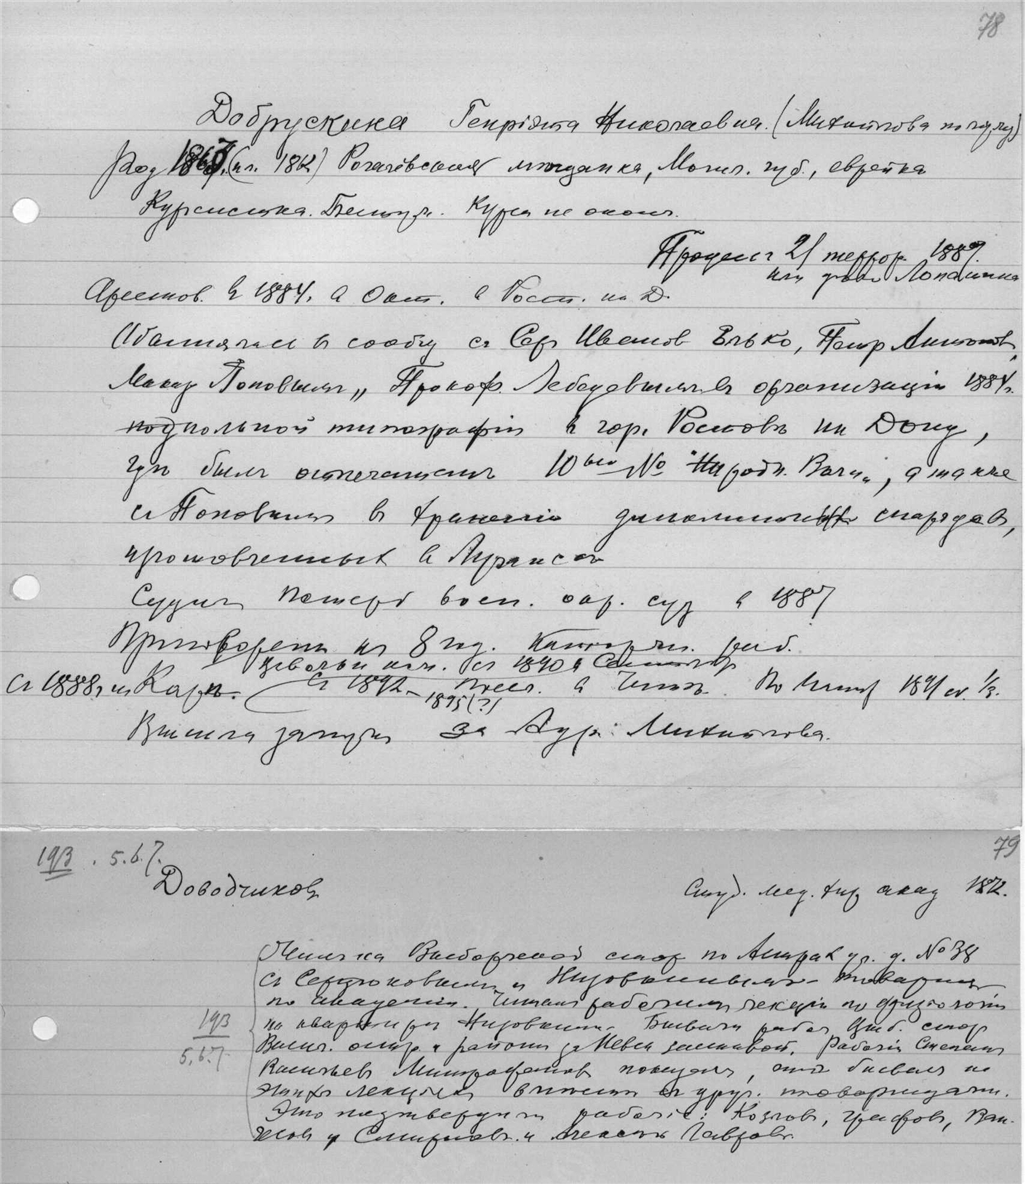 78
Добрускина Генріэта Николаевна. (Михайлова по мужу)
Род 1863. (ил. 1862) Рогачевская мѣщанка, Могил. губ., еврейка
Курсистка. Бестуж. Курса не оконч.
Процесс 21 террор. 1887.
или дѣло Лопатина
Арестов. в 1884. в Окт. в Рост. на Д.
Обвинялась в сообщ с Серг Иванов Елько, Петр Антонов,
Макар Поповым, Прокоф. Лебедевым в организаціи 1884 г.
подпольной типографіи в гор. Ростовѣ на Дону,
гдѣ был отпечатан 10ый № "Народн. Воли", а также
с Поповым в храненіи динамитн снарядов,
изготовленных в Луганске
Судил Петерб воен. окр. суд в 1887
Приговорена к 8 год. Каторжн. раб.
с 1890 в Сентябр
С 1888 г. на Каре. С 1892 посел. в Читѣ. По
1895 (?)
Вышла замуж за Адр. Михайлова.
79
193 . 5.6.7.
Доводчиков
Студ. мед. хир акад 1872.
Жил на Выборгской стор. по Астрах ул. д. № 38
с Сердюковым и Низовкиным товарищ
по академіи. Читал рабочим лекціи по физіологіи
на квартире Низовкина. Бывали рабоч Выб. стор
193
5.6.7.
Васил. остр. и района за Невск заставой. Рабочій Степан
Васильев Митрофанов показал, что бывал на
этих лекціях вместе с друг. товарищами.
Это подтвердили рабочіе: Козлов, Графов,
Смирнов и Алексей Лавров.